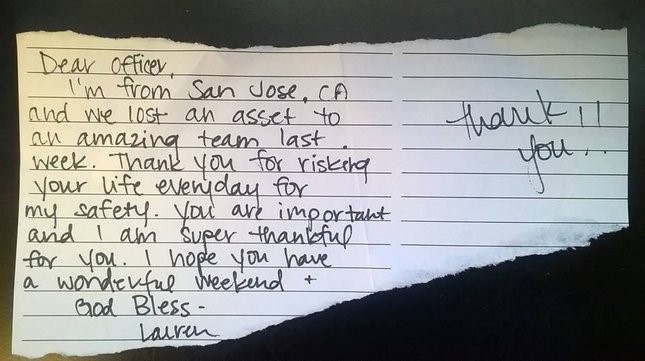 Dear Officer,
I'm from San Jose, CA
and we lost an asset to
an amazing team last
week. Thank you for risking
your life everyday for
my safety. You are important
and I am super thankful
for you. I hope you have
a wonderful weekend +
God Bless -
Lauren
thank !!
you..